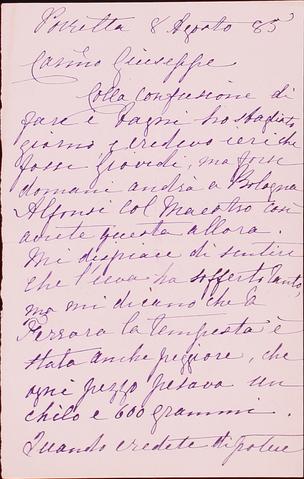 Porretta 8 Agosto 85
Carino Giuseppe
Colla confusione di
fare i bagni ho sbagliato
giorno e credevo ieri che
fosse giovedi, ma forse
domani andrà a Bologna
Alfonsi col Maestro così
avrete questa allora.
Mi dispiace di sentire
che l'uva ha sofferto tanto,
ma mi dicono che a
Ferrara la tempesta è
stata anche peggiore, che
ogni pezzo pesava un
chilo e 600 grammi.
Quando credete di poter